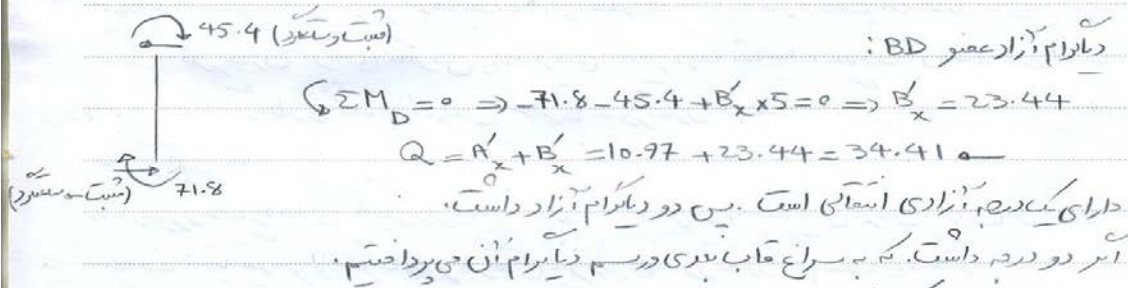 45.4 (مثبت و ساعتگرد)
دیاگرام آزاد عضو BD :
ΣM_D = 0 => -71.8 - 45.4 + B'_x × 5 = 0 => B'_x = 23.44
Q = A'_x + B'_x = 10.97 + 23.44 = 34.41
71.8 (مثبت ساعتگرد)
دارای یک درجه آزادی انتقالی است. پس دو دیاگرام آزاد داشت.
اگر دو درجه داشت که به سراغ قاب بندی و رسم دیاگرام آن می پرداختیم.